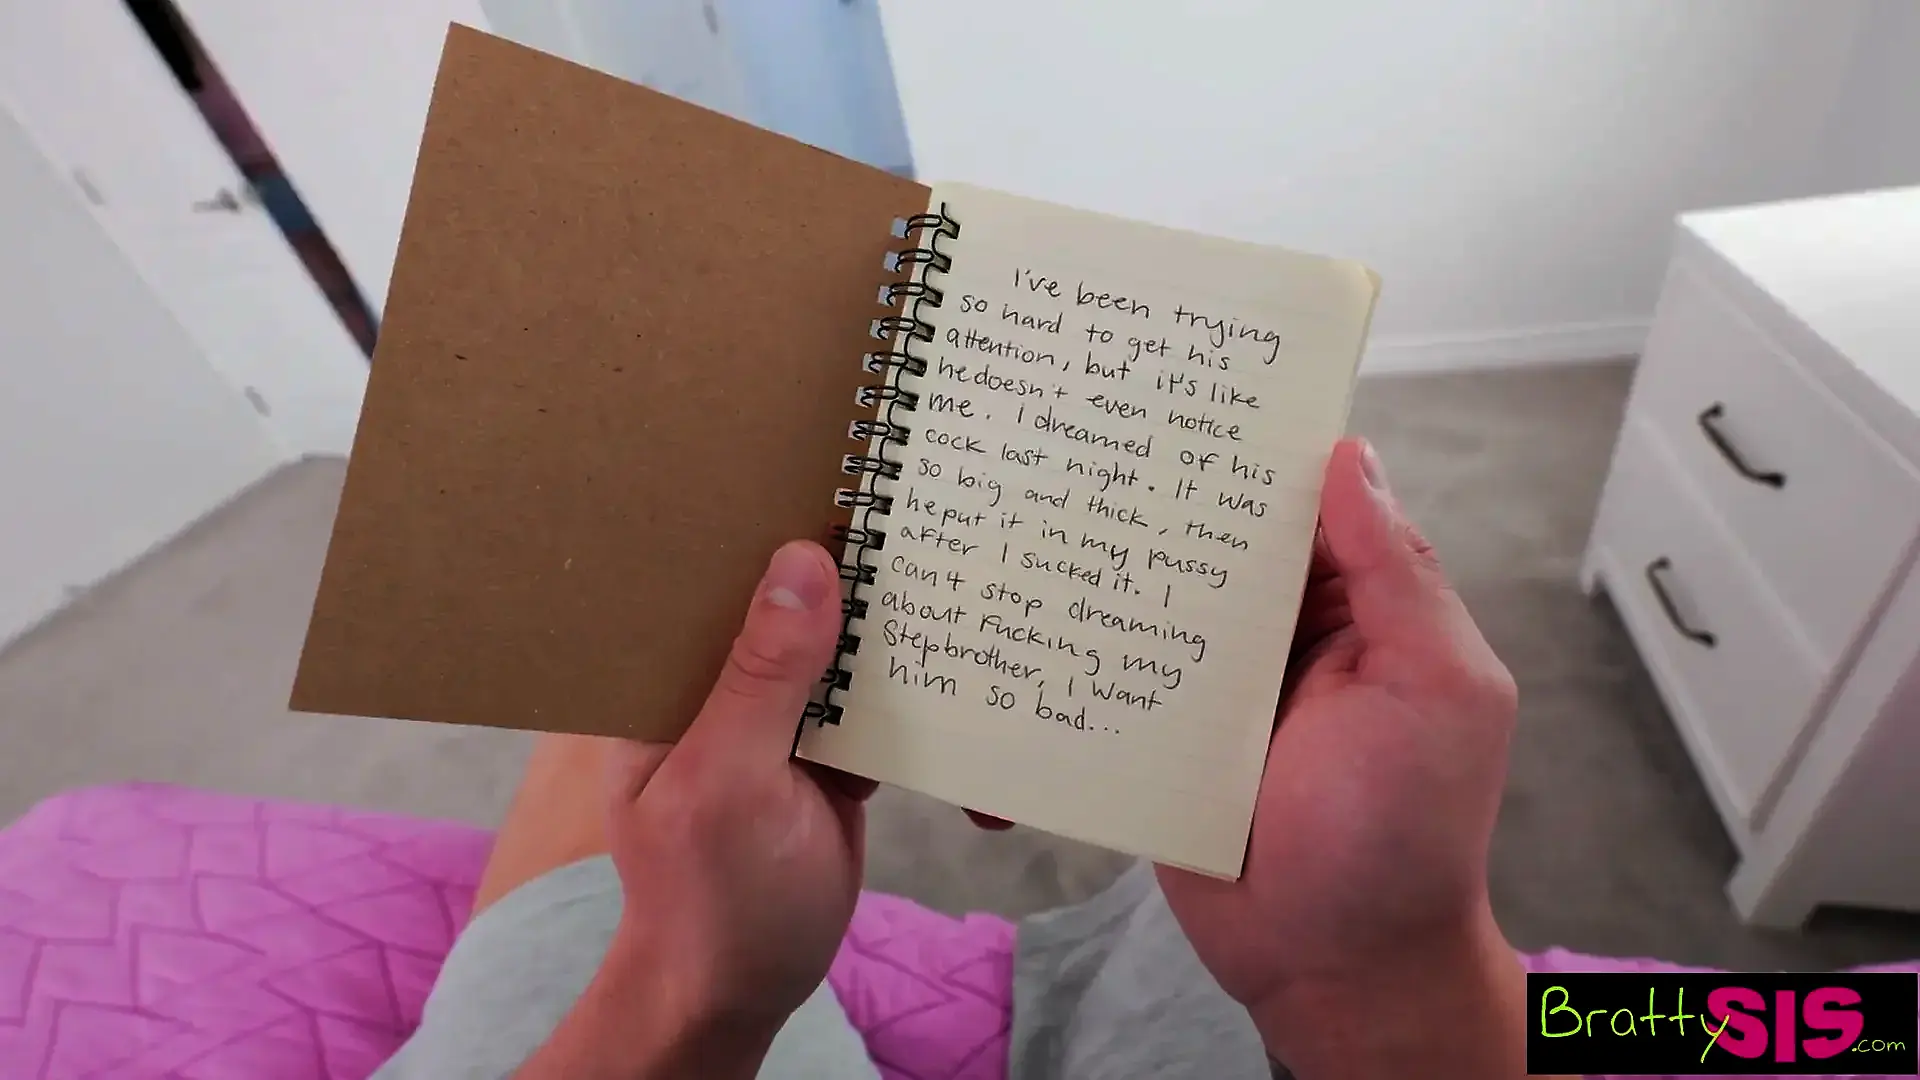 I've been trying
so hard to get his
attention, but it's like
he doesn't even notice
me. I dreamed of his
cock last night. It was
so big and thick, then
he put it in my pussy
after I sucked it. I
can't stop dreaming
about Fucking my
Stepbrother, I want
him so bad...
BrattySIS.com